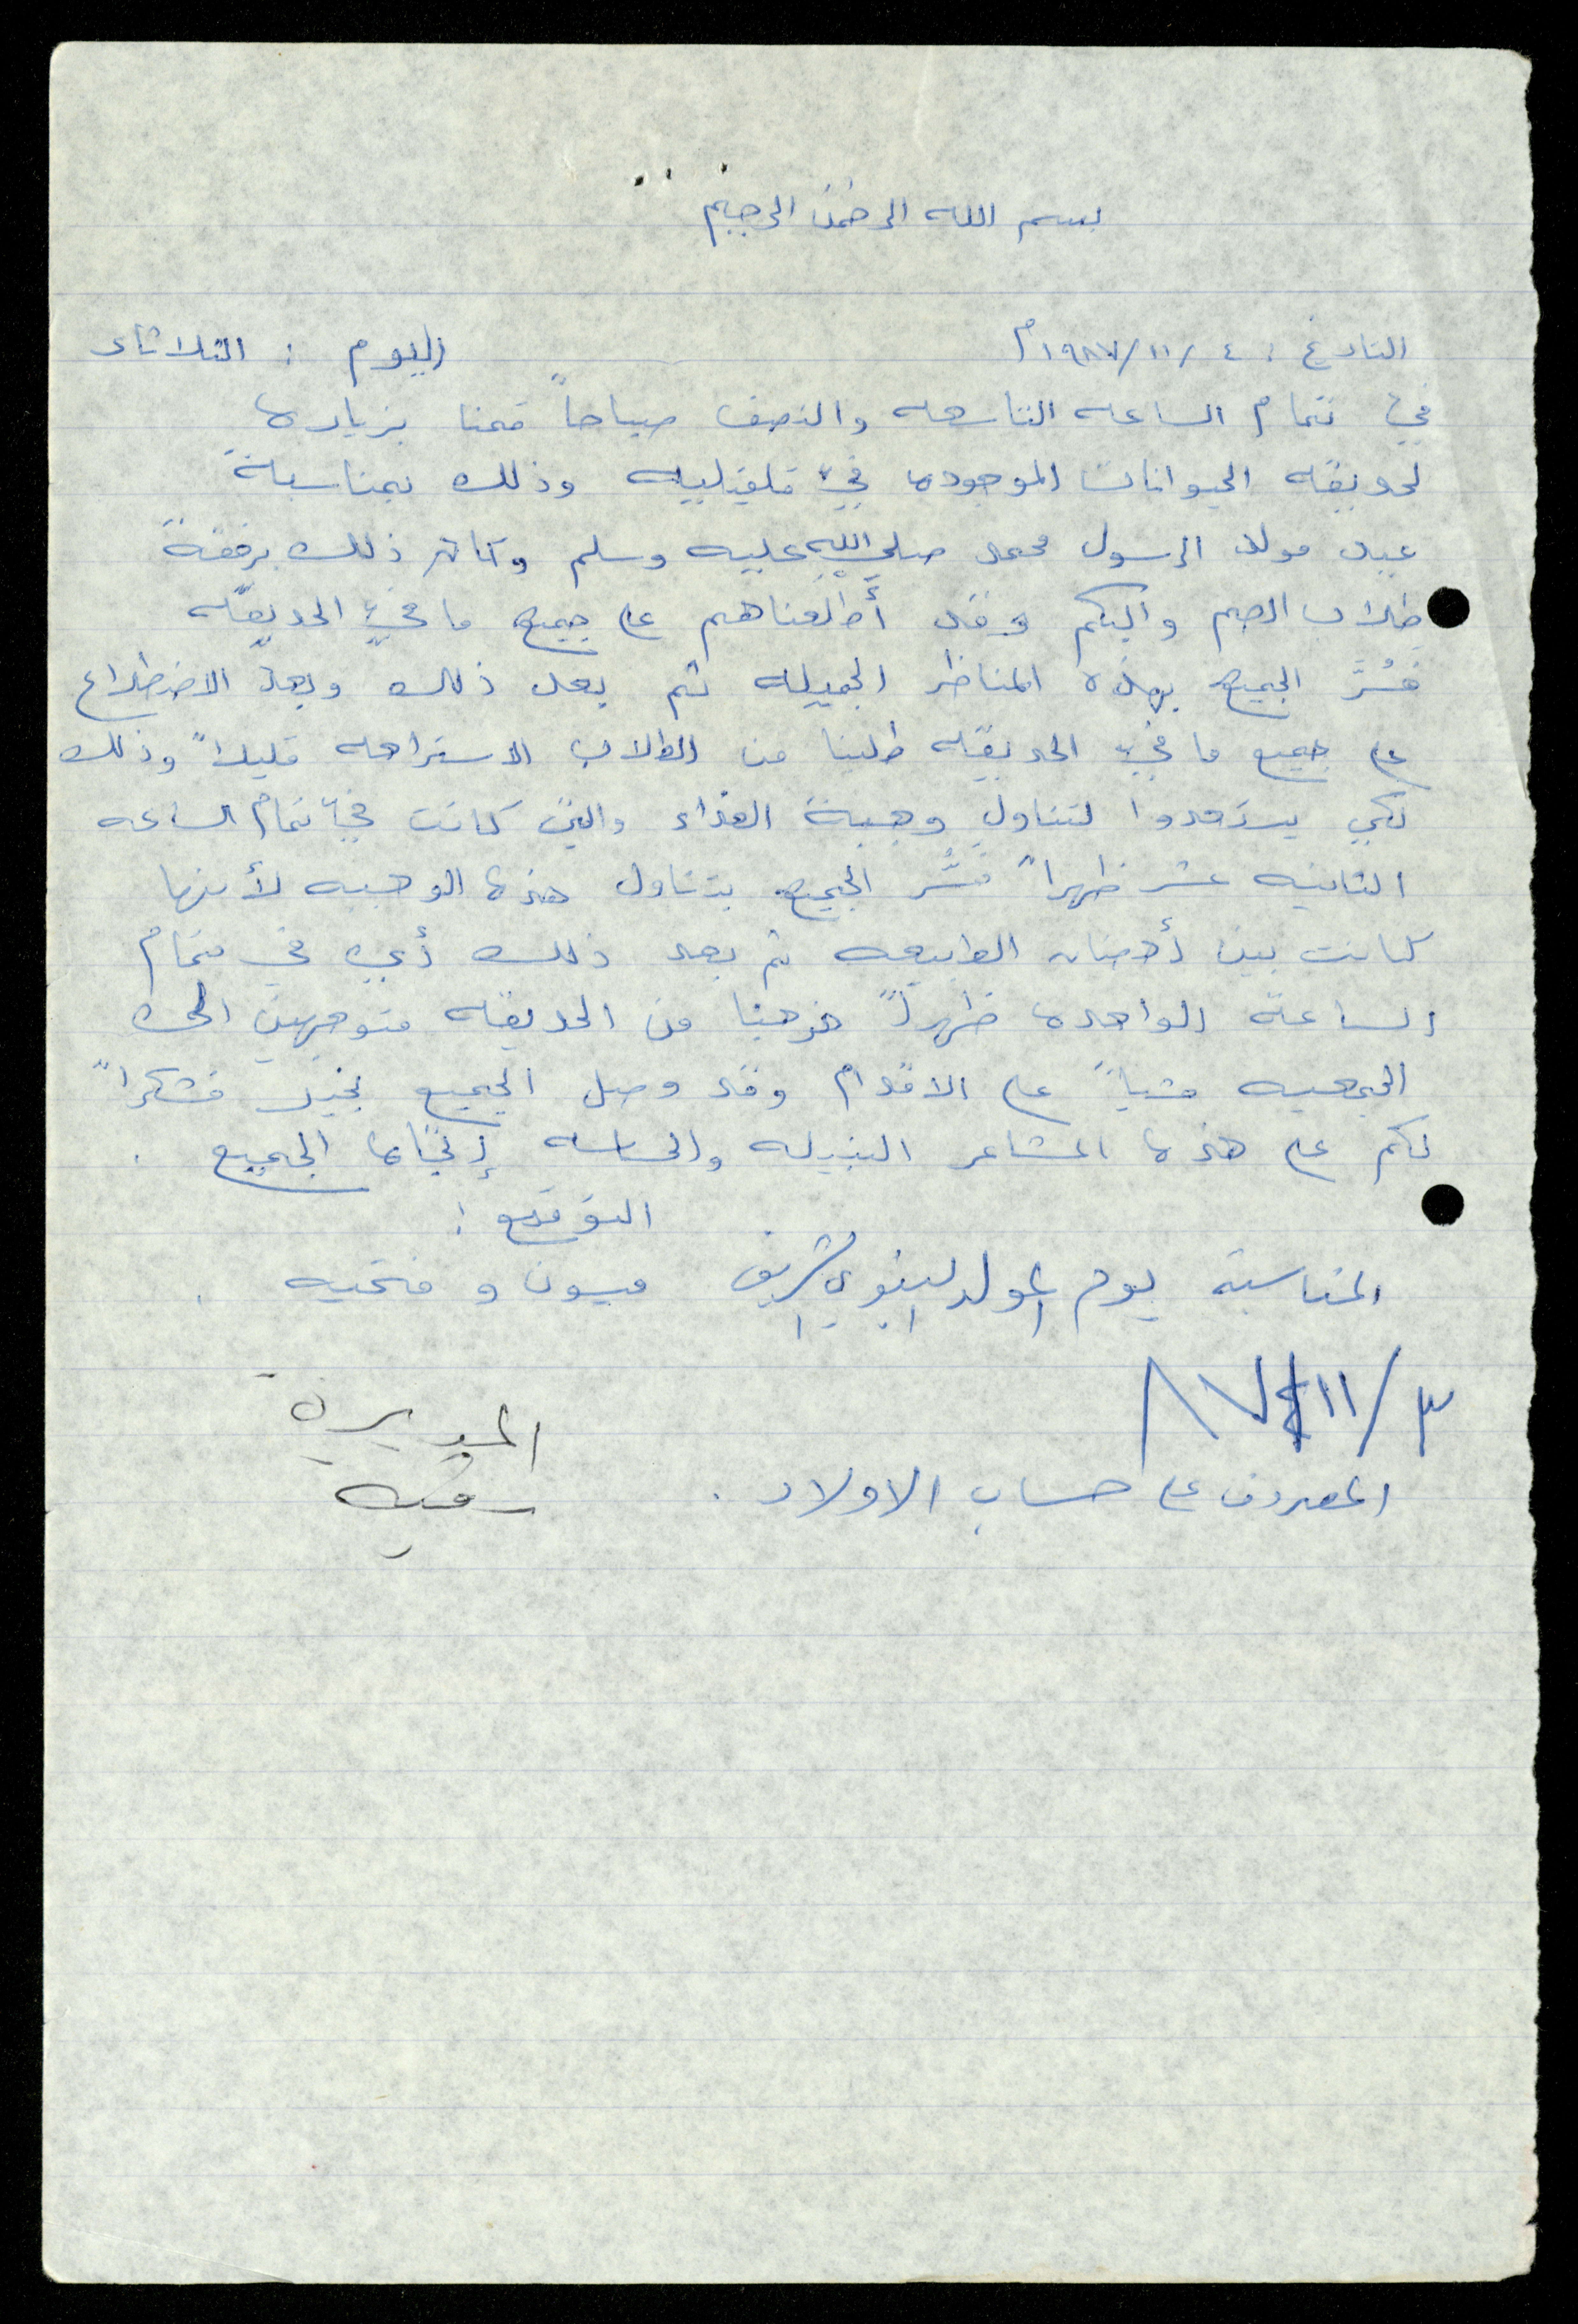 بسم الله الرحمن الرحيم
التاريخ : ٤ /١١/ ١٩٨٧م
اليوم : الثلاثاء
في تمام الساعه التاسعه والنصف صباحاً قمنا بزياره
لحديقه الحيوانات الموجوده في قلقيليه وذلك بمناسبة
عيد مولد الرسول محمد صلى الله عليه وسلم وكان ذلك برفقة
طلاب الصم والبكم وقد أطلعناهم على جميع ما في الحديقه
فسُرَّ الجميع بهذه المناظر الجميله ثم بعد ذلك وبعد الاضطلاع
على جميع ما في الحديقه طلبنا من الطلاب الاستراحه قليلاً وذلك
لكي يستعدوا لتناول وجبة الغذاء والتي كانت في تمام الساعه
الثانيه عشر ظهراً فسُّر الجميع بتناول هذه الوجبه لأنها
كانت بين أحضان الطبيعه ثم بعد ذلك أي في تمام
الساعة الواحده ظهراً خرجنا من الحديقه متوجهين الى
الجمعيه مشياً على الاقدام وقد وصل الجميع بخير فشكراً
لكم على هذه المشاعر النبيله والحساسه إتجاه الجميع .
التوقيع :
المناسبة يوم المولد النبوي الشريف ميسون و فتحيه .
٣/١١/٨٧
المديرة
المصروف على حساب الاولاد .